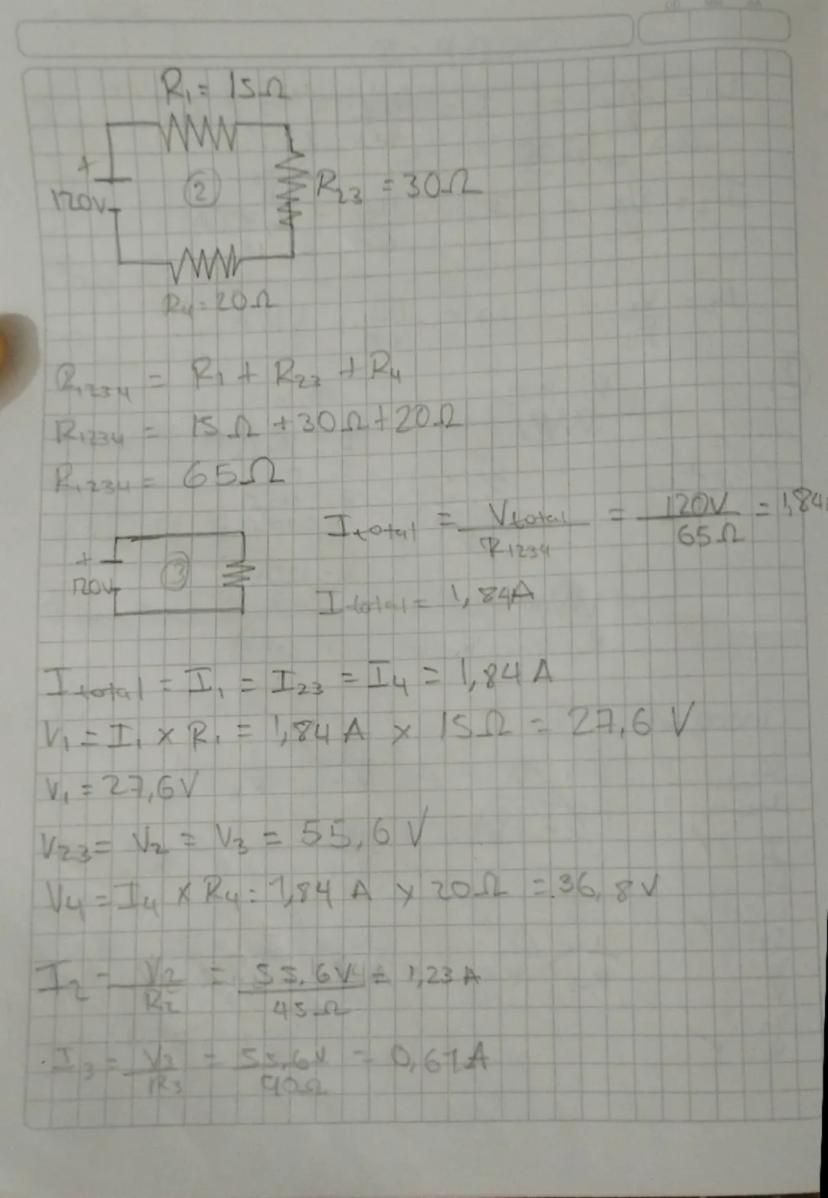 R₁ = 15Ω
+
120V
②
R₂₃ = 30Ω
R₄ = 20Ω
R₁₂₃₄ = R₁ + R₂₃ + R₄
R₁₂₃₄ = 15Ω + 30Ω + 20Ω
R₁₂₃₄ = 65Ω
I total = V total / R₁₂₃₄ = 120V / 65Ω = 1,84A
+
120V
③
I total = 1,84A
I total = I₁ = I₂₃ = I₄ = 1,84 A
V₁ = I₁ × R₁ = 1,84 A × 15Ω = 27,6 V
V₁ = 27,6V
V₂₃ = V₂ = V₃ = 55,6 V
V₄ = I₄ × R₄ = 1,84 A × 20Ω = 36,8 V
I₂ = V₂ / R₂ = 55,6V / 45Ω = 1,23 A
I₃ = V₃ / R₃ = 55,6V / 90Ω = 0,61 A